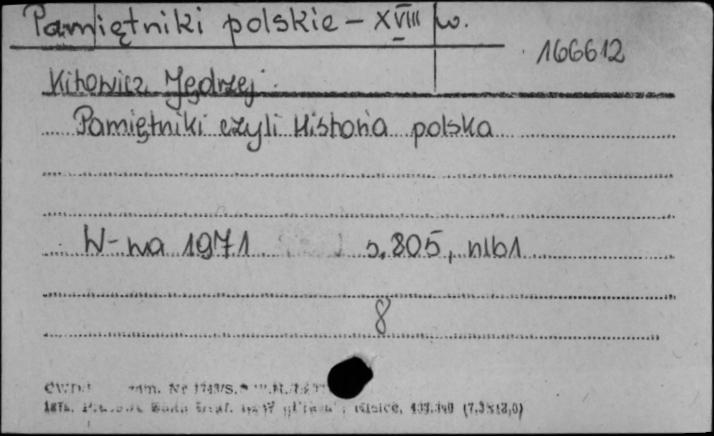 Pamiętniki polskie – XVIII w.
166612
Kitowicz Jędrzej
Pamiętniki czyli Historia polska
W-wa 1971 s. 805, nlb1
8
zam. Nr
(7,5x12,5)